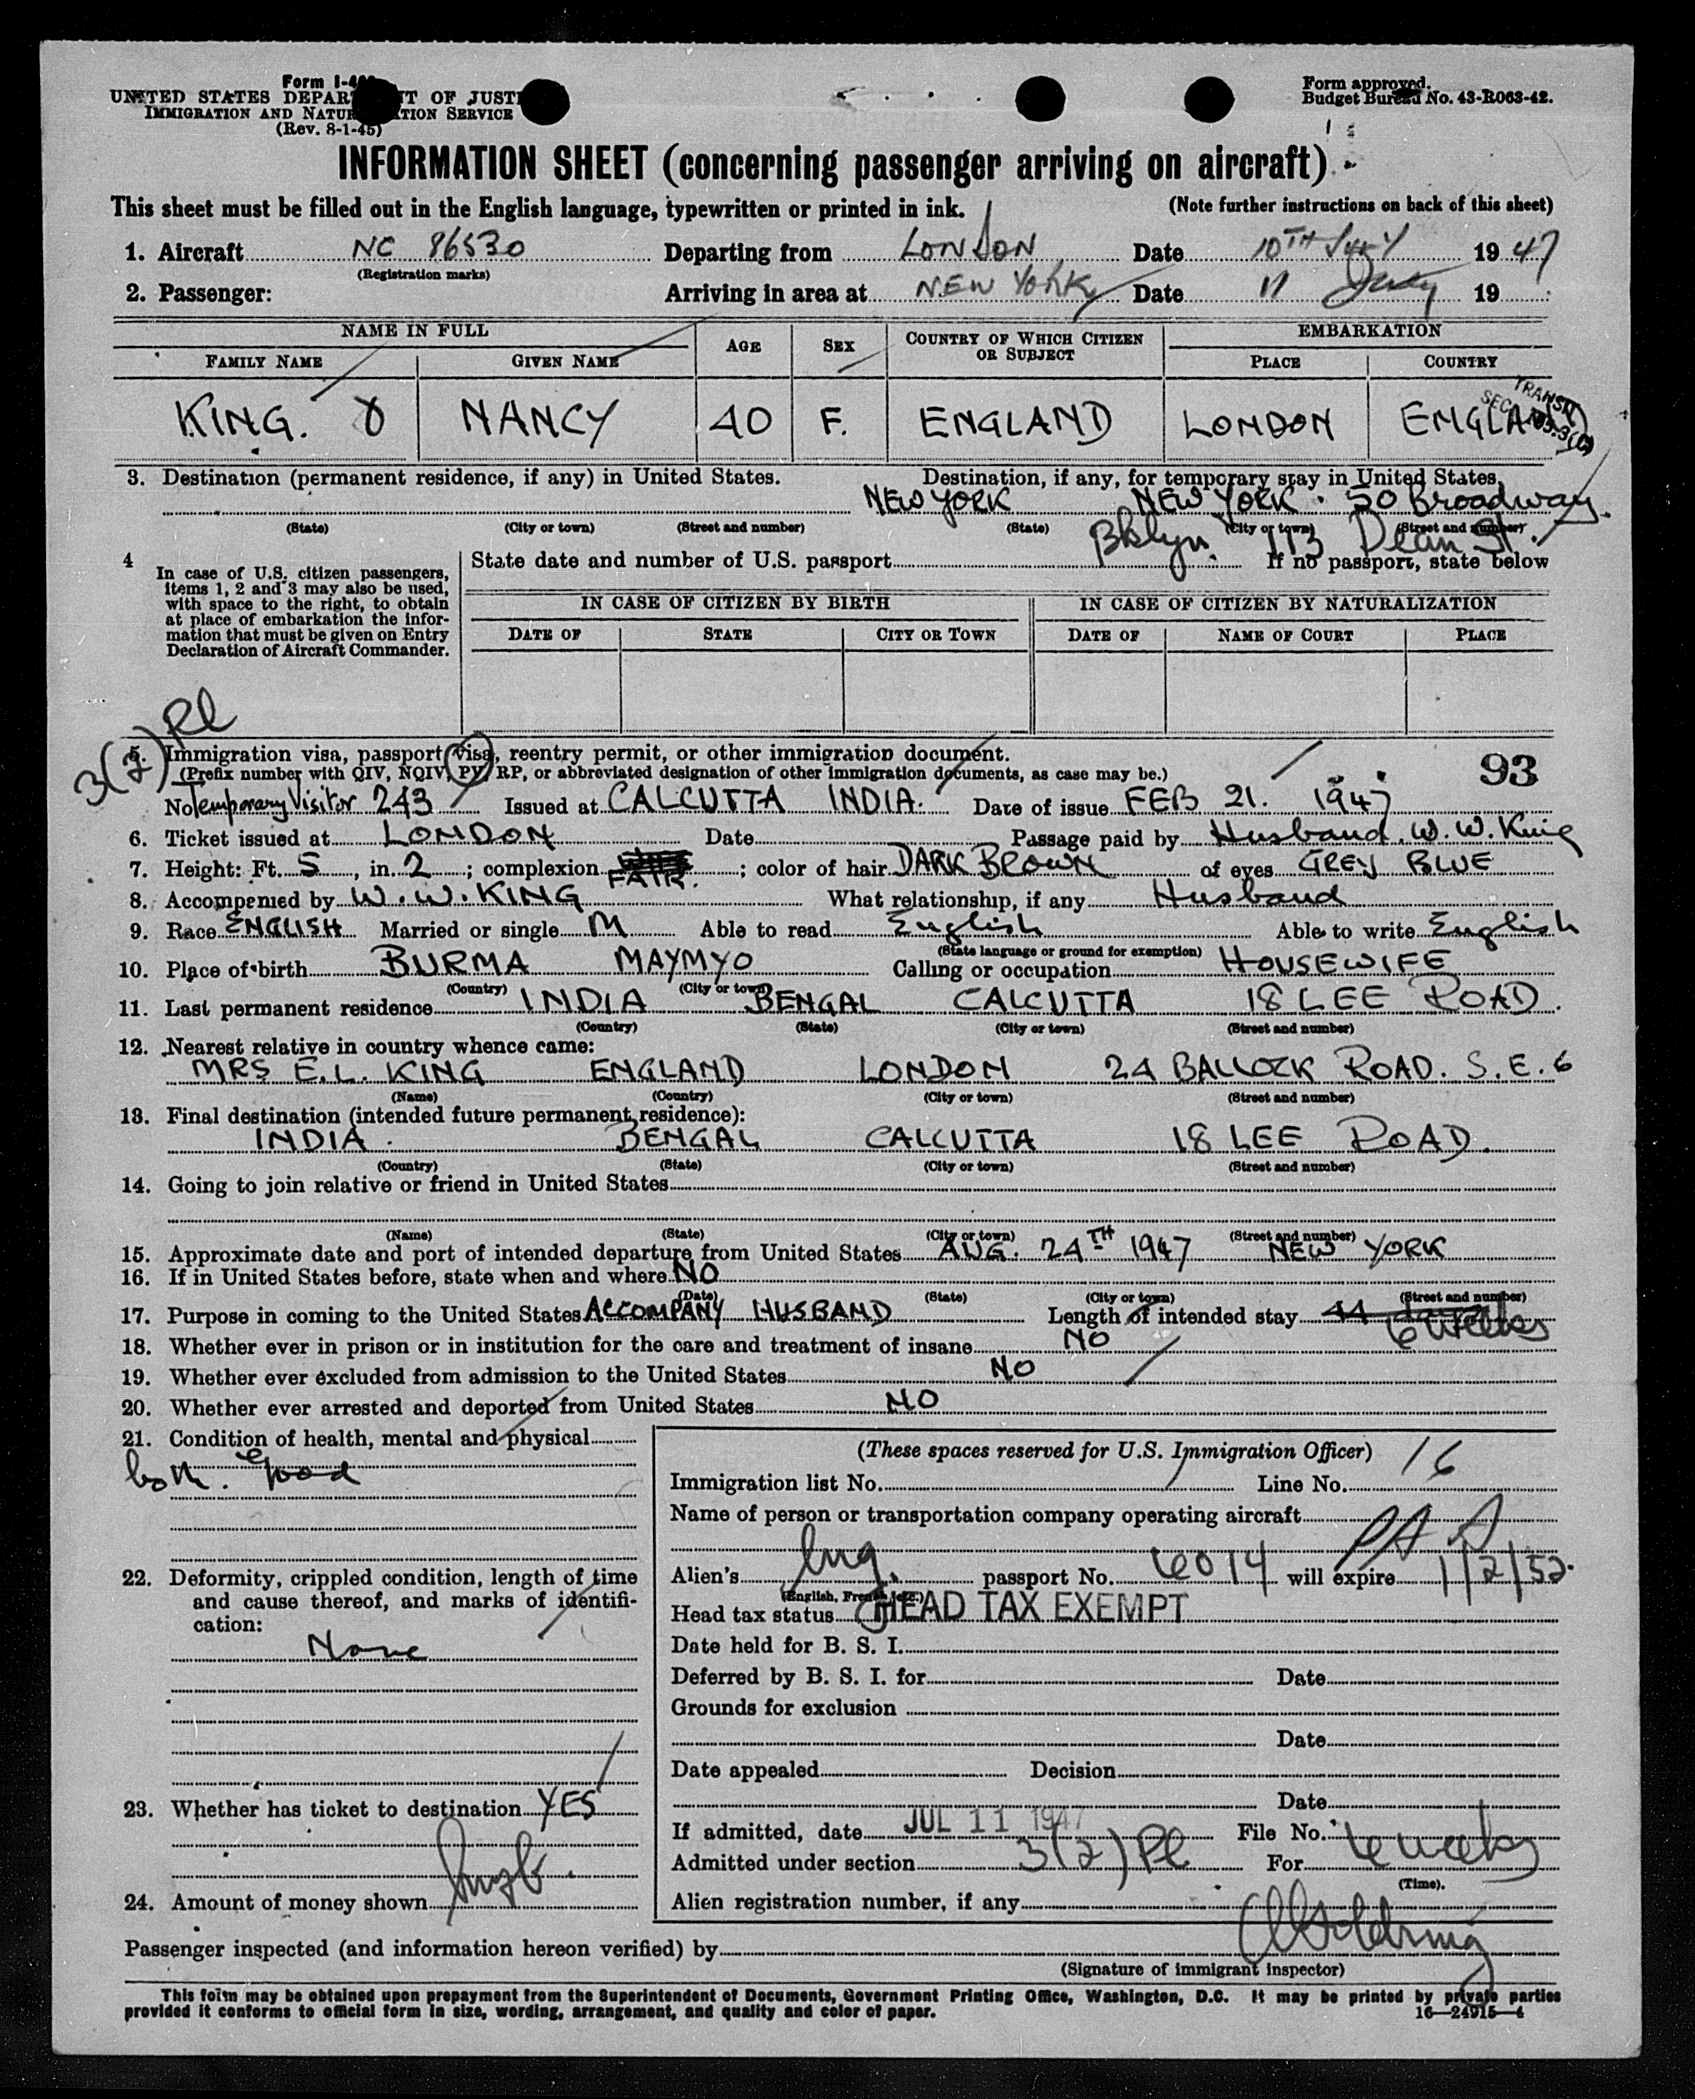 Form I-4
UNITED STATES DEPARTMENT OF JUSTICE
IMMIGRATION AND NATURALIZATION SERVICE
(Rev. 8-1-45)
Form approved.
Budget Bureau No. 43-R063-42.
INFORMATION SHEET (concerning passenger arriving on aircraft)
This sheet must be filled out in the English language, typewritten or printed in ink. (Note further instructions on back of this sheet)
1. Aircraft NC 86530 Departing from LONDON Date 10TH JULY 1947
(Registration marks)
2. Passenger: Arriving in area at NEW YORK Date 11 July 19
NAME IN FULL AGE SEX COUNTRY OF WHICH CITIZEN OR SUBJECT EMBARKATION
FAMILY NAME GIVEN NAME PLACE COUNTRY
KING. NANCY 40 F. ENGLAND LONDON ENGLAND
TRANSIT
3. Destination (permanent residence, if any) in United States. Destination, if any, for temporary stay in United States.
NEW YORK NEW YORK. 50 Broadway.
(State) (City or town) (Street and number) (State) (City or town) (Street and number)
Bklyn. 193 Dean St.
4 In case of U.S. citizen passengers, items 1, 2 and 3 may also be used, with space to the right, to obtain at place of embarkation the information that must be given on Entry Declaration of Aircraft Commander.
State date and number of U.S. passport If no passport, state below
IN CASE OF CITIZEN BY BIRTH IN CASE OF CITIZEN BY NATURALIZATION
DATE OF STATE CITY OR TOWN DATE OF NAME OF COURT PLACE
3(2) Pl
5. Immigration visa, passport visa, reentry permit, or other immigration document.
(Prefix number with QIV, NQIV, PV, RP, or abbreviated designation of other immigration documents, as case may be.)
93
No Temporary Visitor 243 Issued at CALCUTTA INDIA. Date of issue FEB 21. 1947
6. Ticket issued at LONDON Date Passage paid by Husband. W. W. King
7. Height: Ft. 5, in. 2; complexion FAIR.; color of hair DARK BROWN of eyes GREY BLUE
8. Accompanied by W. W. KING What relationship, if any Husband
9. Race ENGLISH Married or single M Able to read English Able to write English
(State language or ground for exemption)
10. Place of birth BURMA MAYMYO Calling or occupation HOUSEWIFE
(Country) (City or town)
11. Last permanent residence INDIA BENGAL CALCUTTA 18 LEE ROAD.
(Country) (State) (City or town) (Street and number)
12. Nearest relative in country whence came:
MRS E. L. KING ENGLAND LONDON 24 BALLOCK ROAD. S.E. 6
(Name) (Country) (City or town) (Street and number)
13. Final destination (intended future permanent residence):
INDIA. BENGAL CALCUTTA 18 LEE ROAD.
(Country) (State) (City or town) (Street and number)
14. Going to join relative or friend in United States
(Name) (State) (City or town) (Street and number)
15. Approximate date and port of intended departure from United States AUG. 24TH 1947 NEW YORK
16. If in United States before, state when and where NO
(Date) (State) (City or town) (Street and number)
17. Purpose in coming to the United States ACCOMPANY HUSBAND Length of intended stay 44 days
6 weeks
18. Whether ever in prison or in institution for the care and treatment of insane NO
19. Whether ever excluded from admission to the United States NO
20. Whether ever arrested and deported from United States NO
21. Condition of health, mental and physical
both. Good
22. Deformity, crippled condition, length of time and cause thereof, and marks of identification:
None
23. Whether has ticket to destination YES
24. Amount of money shown
(These spaces reserved for U.S. Immigration Officer)
Immigration list No. Line No. 16
Name of person or transportation company operating aircraft
PAA
Alien's Eng. passport No. 6014 will expire 1/2/52.
(English, French, etc.)
Head tax status HEAD TAX EXEMPT
Date held for B. S. I.
Deferred by B. S. I. for Date
Grounds for exclusion
Date
Date appealed Decision
Date
If admitted, date JUL 11 1947 File No.
Admitted under section 3(2) Pl For 6 weeks
(Time).
Alien registration number, if any
Passenger inspected (and information hereon verified) by
(Signature of immigrant inspector)
This form may be obtained upon prepayment from the Superintendent of Documents, Government Printing Office, Washington, D.C. It may be printed by private parties
provided it conforms to official form in size, wording, arrangement, and quality and color of paper. 16—24915-4